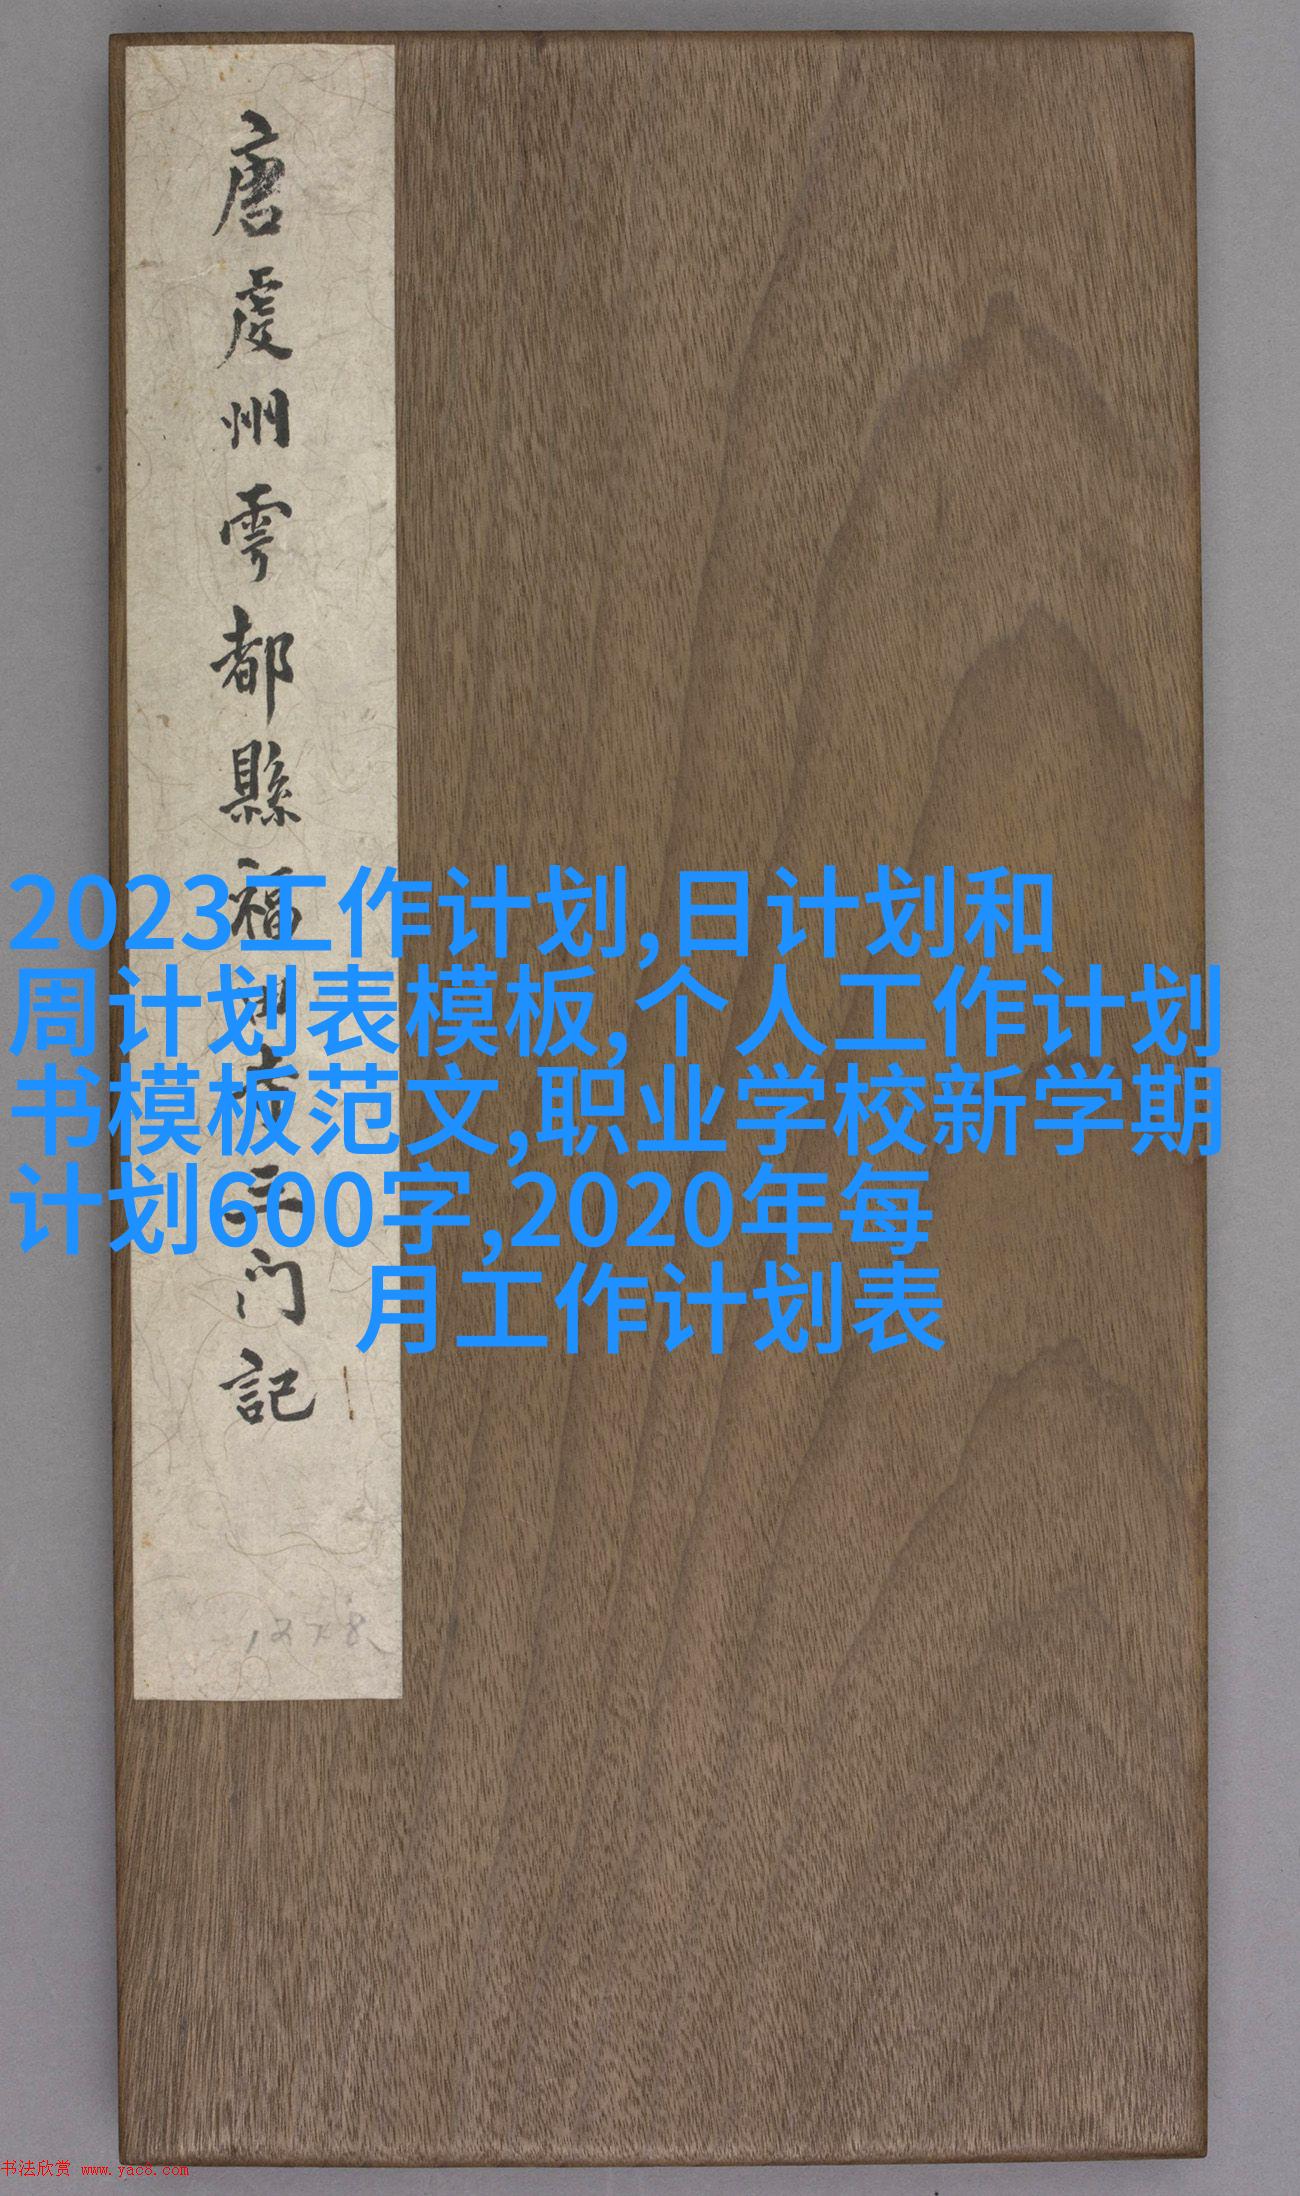 唐虔州雩都縣福田寺三門記
2023工作计划,日计划和
周计划表模板,个人工作计划
书模板范文,职业学校新学期
计划600字,2020年每
月工作计划表
书法欣赏 www.yac8.com